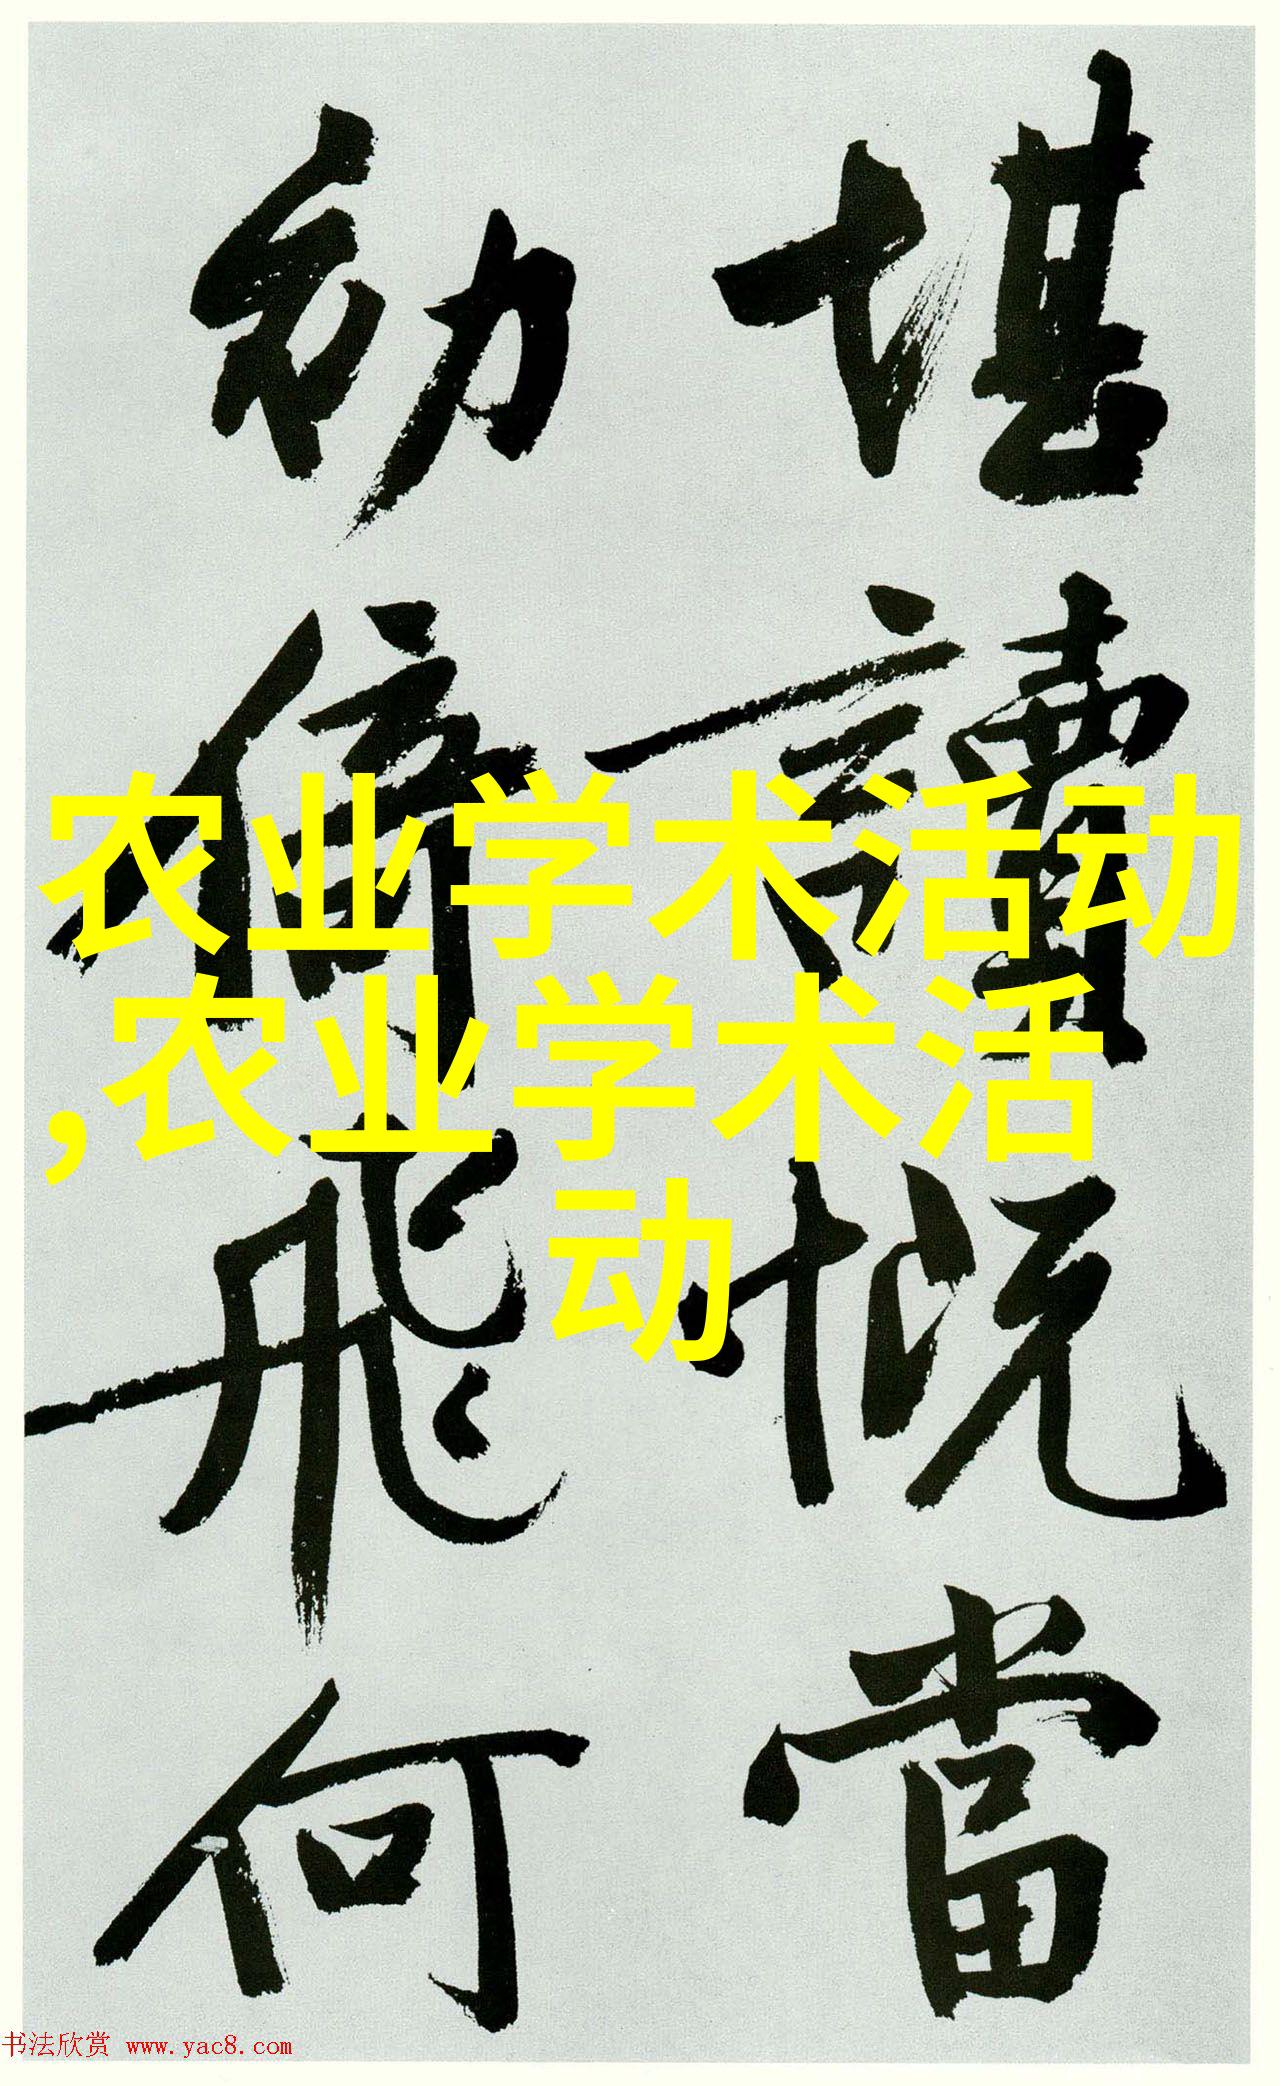 堪讀慨當
初倚飛何
农业学术活动
,农业学术活
动
书法欣赏 www.yac8.com